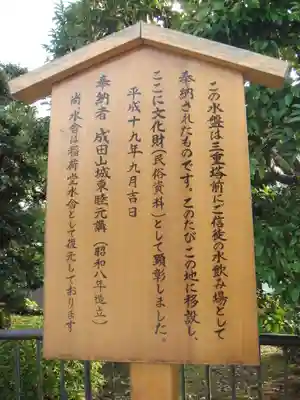 この水盤は三重塔前にご信徒の水飲み場として
奉納されたものです。このたび、この地に移設し、
ここに文化財（民俗資料）として顕彰しました。
平成十九年九月吉日
奉納者 成田山城東睦元講（昭和八年造立）
尚、水舎は稲荷堂水舎として復元しております